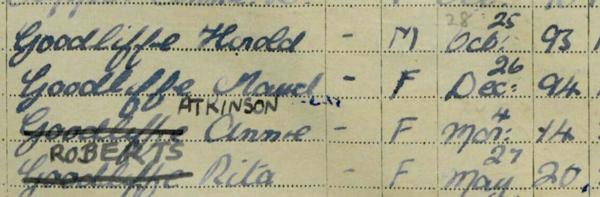 Goodliffe Harold - M 28 25 Oct: 93
Goodliffe Maud - F 26 Dec: 94
ATKINSON
Goodliffe Annie - F 4 Mar: 14
ROBERTS
Goodliffe Rita - F 27 May 20